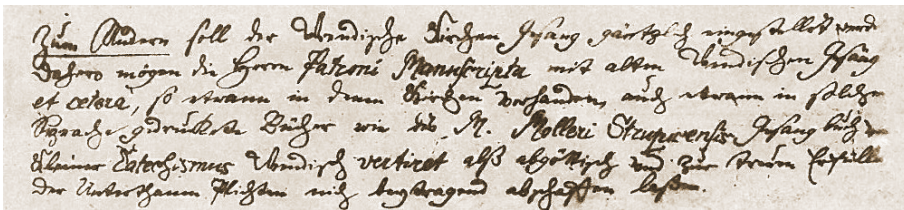 Zum Andern soll der Wendische Kirchen Gesang gäntzlich eingestellet werd
dahero mögen die Herrn Patroni Manuscripta mit alten Wendischen Gesäng
et cetera, so etwann in denen Kirchen verhanden, auch etwann in solcher
Sprache gedruckte Bücher wie des M. Molleri Strupicensis Gesangbuch
Kleiner Catechismus Wendisch vertiret alß abgöttisch und zur treuen Erfüll
der Unterthanen Pflichten nich beytragend abschaffen laßen.